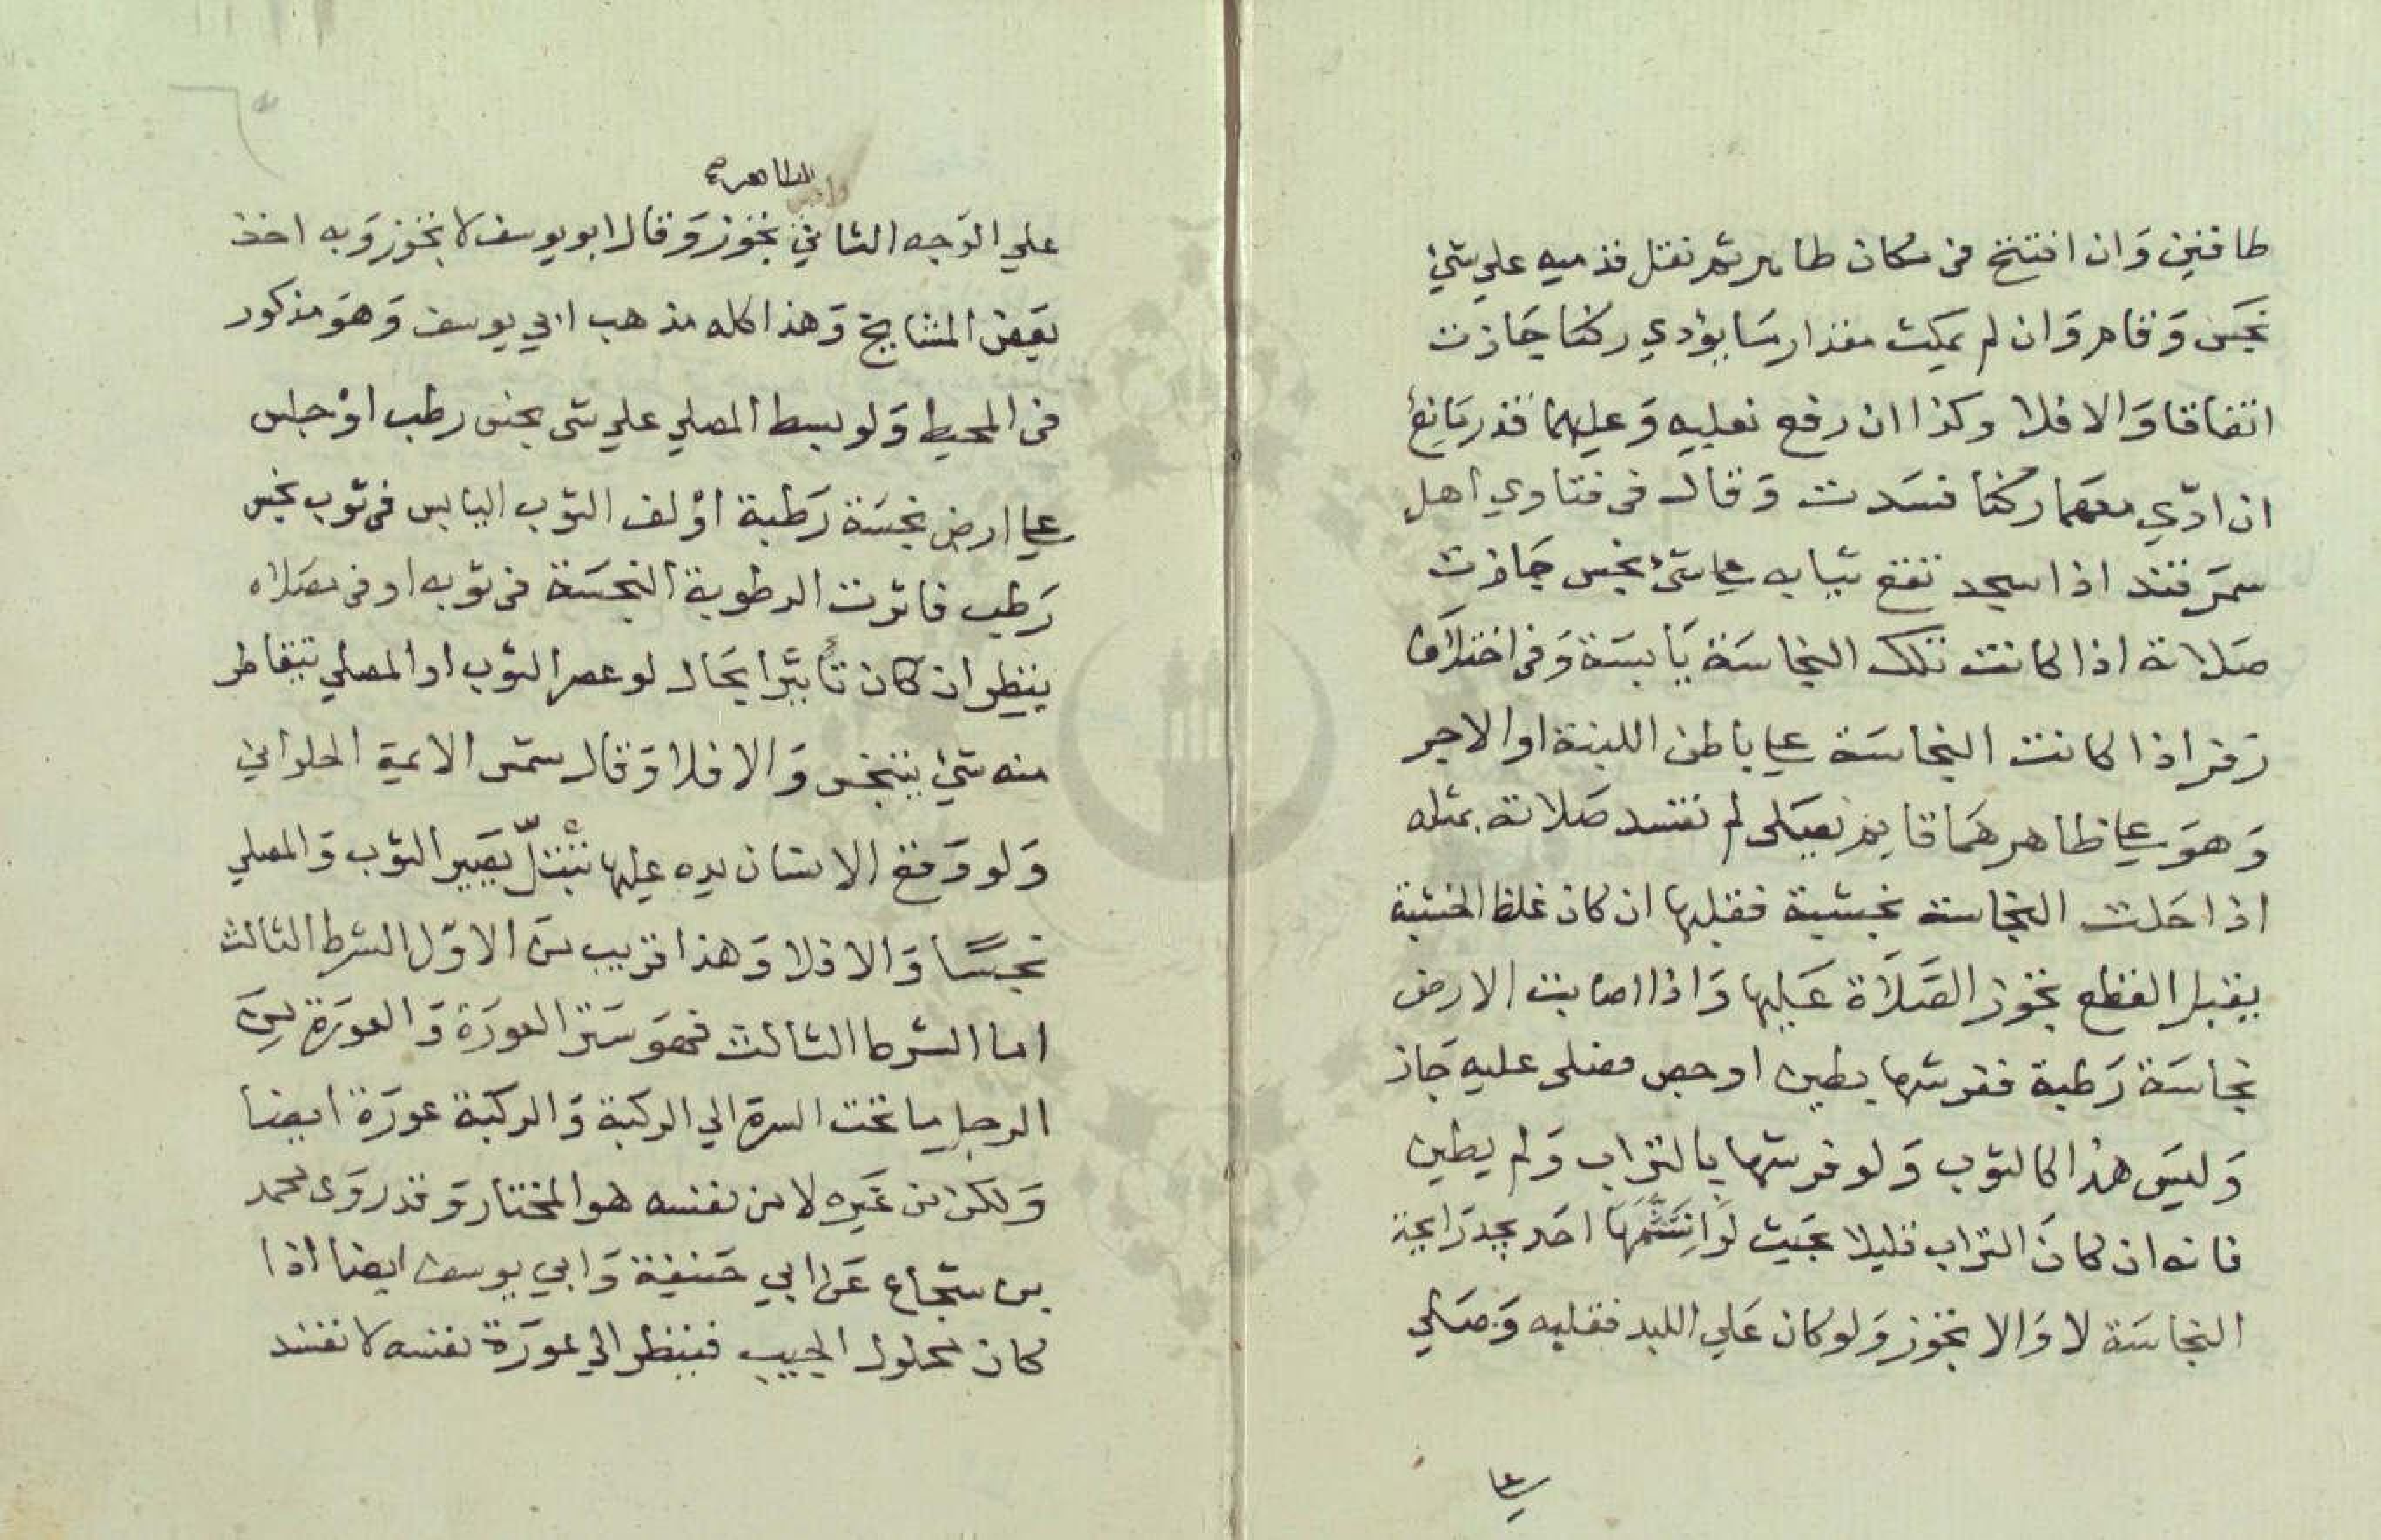 طاقتين وَان افتتح فى مكان طاهر ثم نقل قدميه علي شئ
نجس وَقام وَان لم يمكث مقدار مَا يؤدي ركنا جَازت
اتفاقا وَالا فلا وكذا ان رفع نعليه وَعليهما قذر مَانع
ان ادّي معهما ركنا فسَدت وَقال فى فتاوي اهل
سمرقند اذا سجد تقع ثيابه على شئ نجس جَازت
صَلاته اذا كانت تلك النجاسَة يَابسَة وَفى اختلاف
زفر اذا كانت النجاسَة على باطن اللبنة او الاجر
وَهوَ على ظاهرهمَا قايم يصَلى لم تفسد صَلاته بمثله
اذا حَلت النجاسة بخشبة فقلبها ان كان غلظ الخشبة
يقبل القطع تجوز الصَّلَاة عَليها وَاذا اصابت الارض
نجاسَة رَطبة ففرشها بطين او جص فصلى عليه جَاز
وَليسَ هذا كالثوب وَلو فرشها بالتراب وَلم يطين
فانه ان كانَ التراب قليلا بحَيث لَو استَشَمهَا احَد يجد رَايحة
النجاسَة لا وَالا تجوز وَلو كان عَلي اللبد فقلبه وَصَلي
على
الطاهر
علي الوَجه الثاني تجوز وَقال ابو يوسف لا تجوز وَبه اخذ
بَعض المشايخ وَهذا كله مذهب ابي يوسف وَهوَ مذكور
فى المحيط وَلو بسط المصلي علي شى نجس رطب اوْ جلس
على ارض نجسَة رَطبة اوْ لف الثوب اليابس فى ثوب نجس
رَطب فاثرت الرطوبة النجسَة فى ثوبه او فى مصَلاه
ينظر ان كان تأثيرا بحَال لو عصر الثوب او المصلي تتقاطر
منه شئ يتنجس وَالا فلا وَقال شمس الايمة الحلواني
وَلو وَضع الانسان يده عليها تبْتلّ يصَير الثوب وَالمصلي
نجسًا وَالا فلا وَهذا قريب منَ الاوّل الشرط الثالث
اما الشرط الثالث فهوَ سَتر العورَة وَالعورَة منَ
الرجل ما تحت السرة الي الركبة وَالركبة عورَة ايضا
وَلكن من غَيره لا من نفسه هو المختار وَقد روَى محمد
بن شجاع عَن ابي حَنيفة وَابي يوسف ايضا اذا
كان محلول الجيب فينظر الي عورَة نفسه لا تفسد